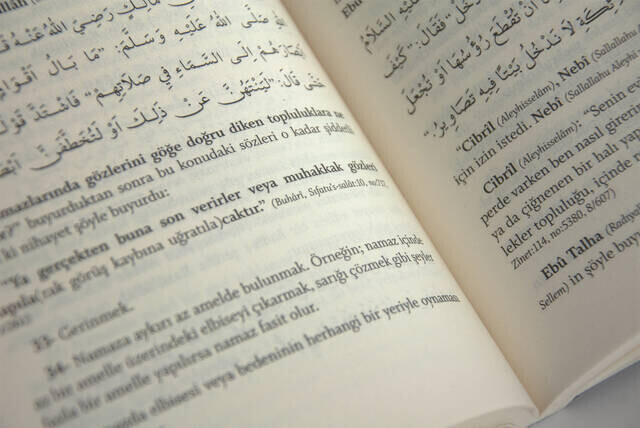 مَالِكٍ رَضِيَ اللَّهُ عَنْهُ
صَلَّى اللَّهُ عَلَيْهِ وَسَلَّمَ: "مَا بَالُ أَقْوَامٍ
أَبْصَارَهُمْ إِلَى السَّمَاءِ فِي صَلَاتِهِمْ" فَاشْتَدَّ قَوْلُهُ
حَتَّى قَالَ: "لَيَنْتَهُنَّ عَنْ ذَلِكَ أَوْ لَتُخْطَفَنَّ
namazlarında gözlerini göğe doğru diken topluluklara ne
buyurduktan sonra bu konudaki sözleri o kadar şiddetli
ki nihayet şöyle buyurdu:
"Ya gerçekten buna son verirler veya muhakkak gözleri
(rak görüş kaybına uğratıla)caktır." (Buhârî, Sıfatu's-salât:10, no:717,
13- Gerinmek.
14- Namaza aykırı az amelde bulunmak. Örneğin; namaz içinde
bir amelle üzerindeki elbiseyi çıkarmak, sarığı çözmek gibi şeyler
bir amelle yapılırsa namaz fasit olur.
elbisesi veya bedeninin herhangi bir yeriyle oynaması
عَلَيْهِ السَّلَامُ
فَقَالَ: "كَيْفَ
أَنْ تُقْطَعَ رُؤُسُهَا أَوْ تُجْعَلَ
لَا تَدْخُلُ بَيْتًا فِيهِ تَصَاوِيرُ"
"Cibrîl (Aleyhisselâm), Nebî (Sallallahu
için izin istedi. Nebî (Sallallahu Aleyhi
Cibrîl (Aleyhisselâm): "Senin ev
perde varken ben nasıl girer
ya da çiğnenen bir halı ya
lekler topluluğu, içinde
Zinet:114, no:5380, 8/607)
Ebû Talha (Radıy
Sellem) in şöyle buy